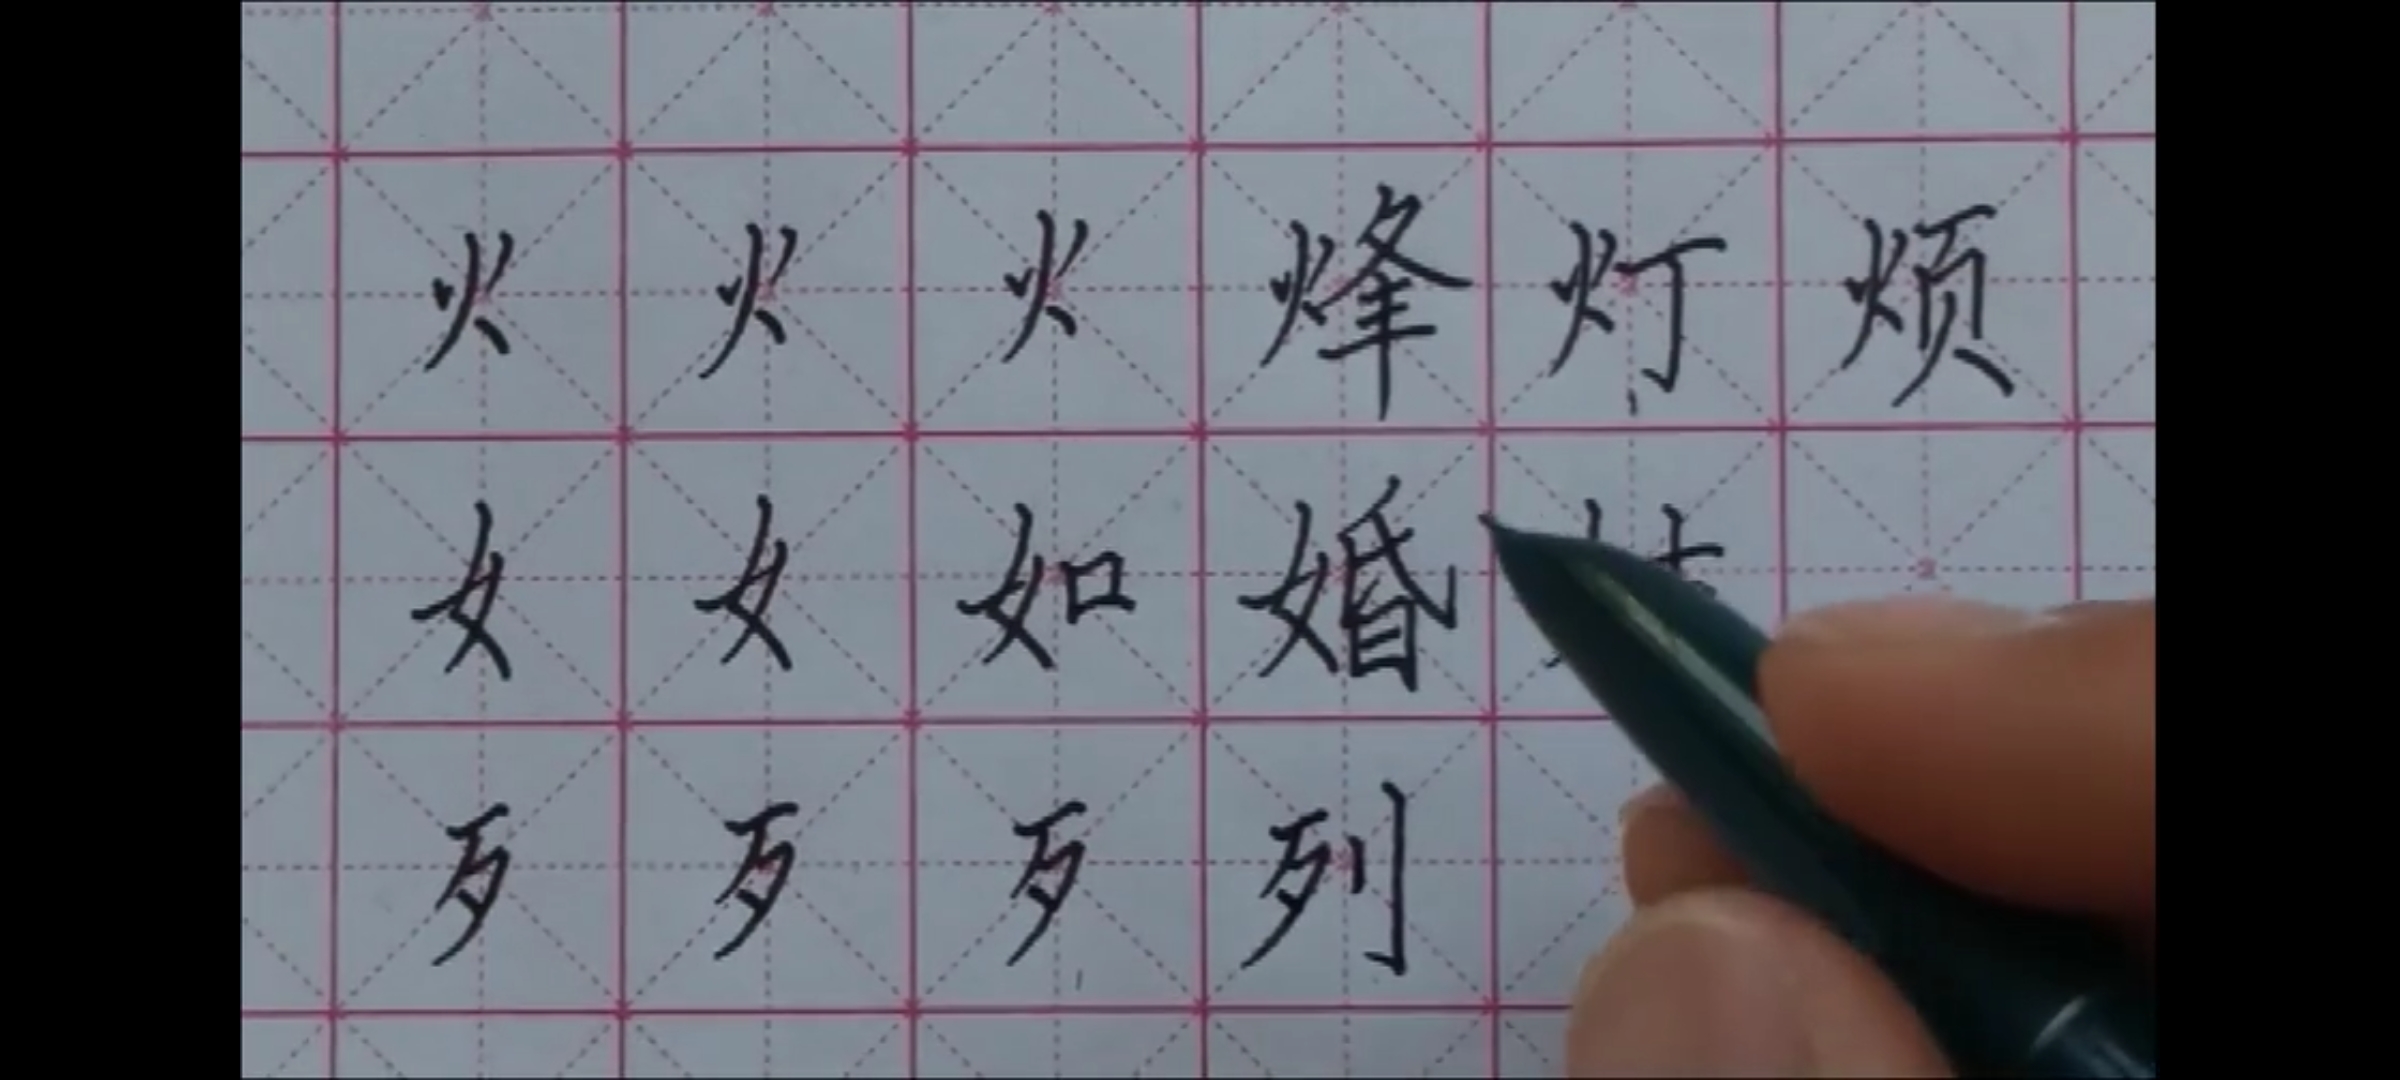 火 火 火 烽 灯 烦
女 女 如 婚
歹 歹 歹 列